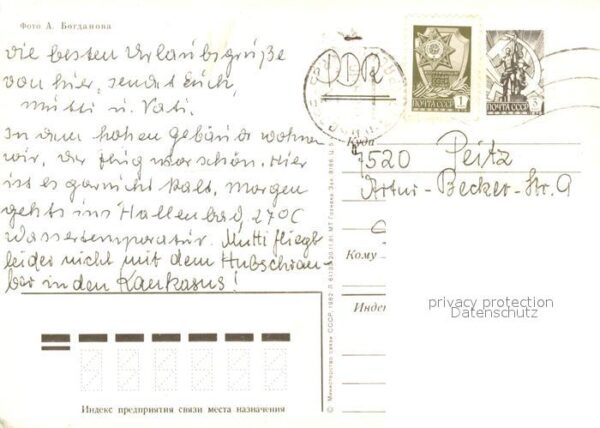 Фото А. Богданова
die besten Urlaubsgrüße
von hier, sendet Euch,
Mutti u. Vati.
In dem hohen Gebäude wohnen
wir, der Flug war schön. Hier
ist es garnicht kalt, morgen
gehts ins Hallenbad, 27°C
Wassertemperatur. Mutti fliegt
leider nicht mit dem Hubschrau-
ber in den Kaukasus!
ПОЧТА СССР 1
ПОЧТА СССР 3
Куда
7520 Peitz
Artur-Becker-Str. 9
Кому
Индекс
privacy protection
Datenschutz
© Министерство связи СССР, 1982
Индекс предприятия связи места назначения